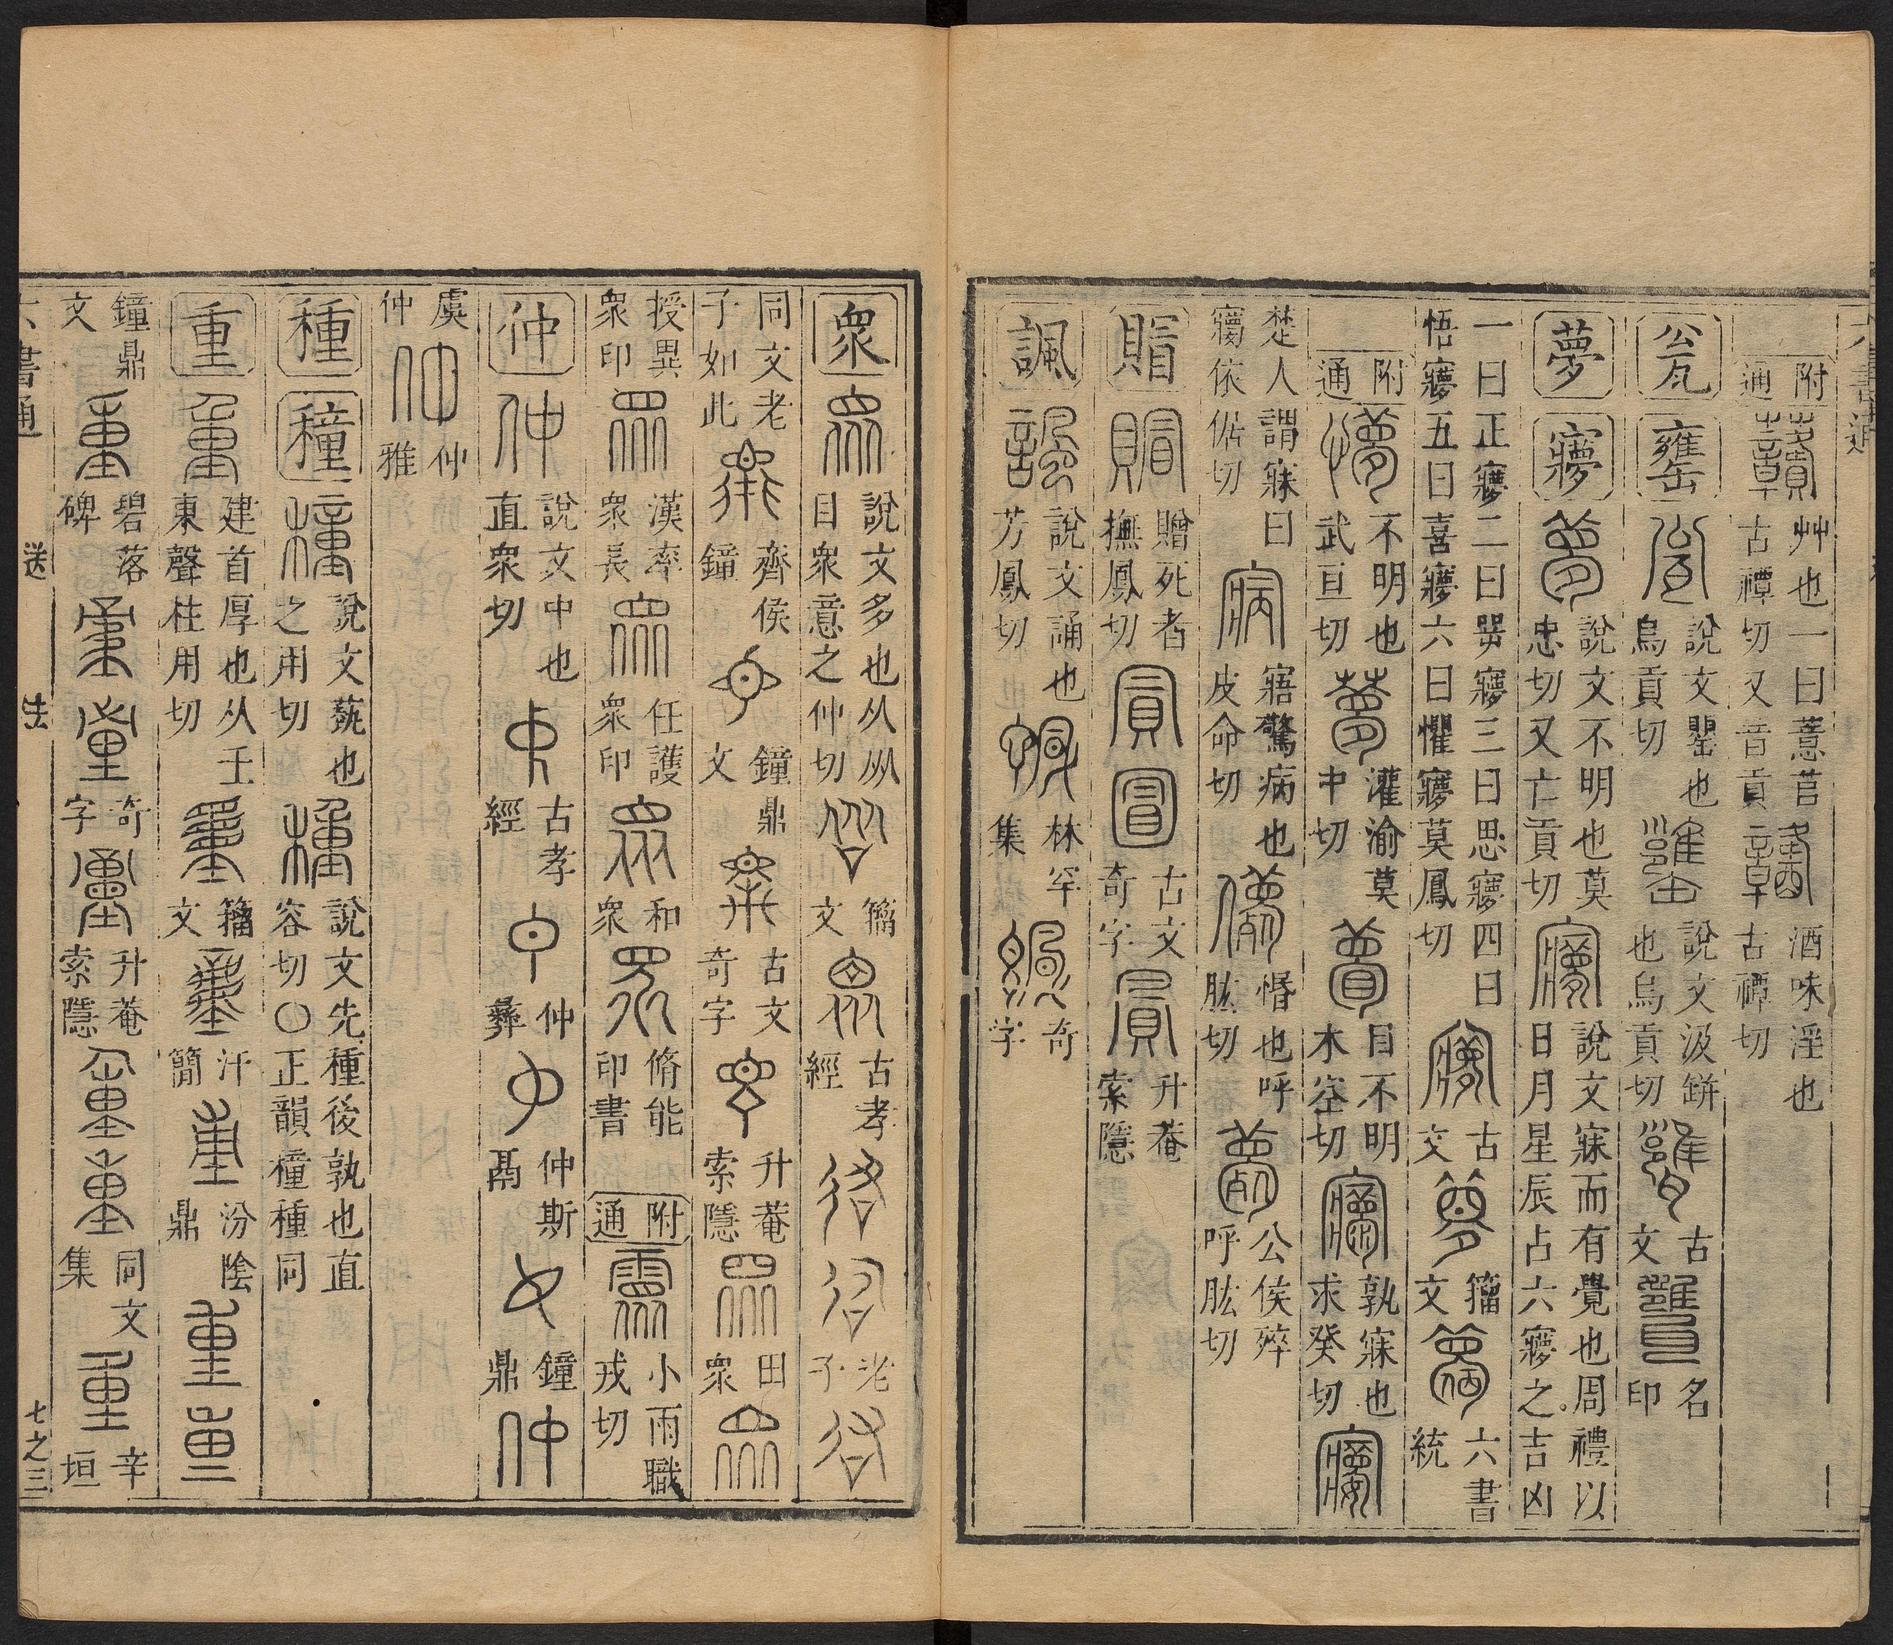 附通 艸也一曰薏苢古禫切又音貢 酒味淫也古禫切
瓮 罋 說文罌也烏貢切 說文汲缾也烏貢切 古文 名印
夢 㝱 說文不明也莫忠切又亡貢切 說文寐而有覺也周禮以日月星辰占六㝱之吉凶
一曰正㝱二曰咢㝱三曰思㝱四曰悟㝱五曰喜㝱六曰懼㝱莫鳳切 古文 籀文 六書統
附通 不明也武亘切 灌渝莫中切 目不明木空切 孰寐也求癸切
楚人謂寐曰㝱依倨切 寤驚病也皮命切 惛也呼肱切 公侯殚呼肱切
賵 贈死者撫鳳切 古文奇字 升菴索隱
諷 說文誦也芳鳳切 林罕集 奇字
衆 說文多也从㐺目衆意之仲切 籀文 古孝經 老子
同文老子如此 齊侯鐘 鐘鼎文 古文奇字 升菴索隱 田衆
授異衆印 漢率衆長 任護衆印 和衆 脩能印書 附通 小雨職戎切
仲 仲 說文中也直衆切 古孝經 仲彝 仲斯鬲 鐘鼎
虞仲 仲雅
種 穜 說文埶也之用切 說文先種後孰也直容切〇正韻穜種同
重 建首厚也从壬東聲柱用切 籀文 汗簡 汾陰鼎
鐘鼎文 碧落碑 奇字 升菴索隱 同文集 辛垣
六書通 送 去 七之三